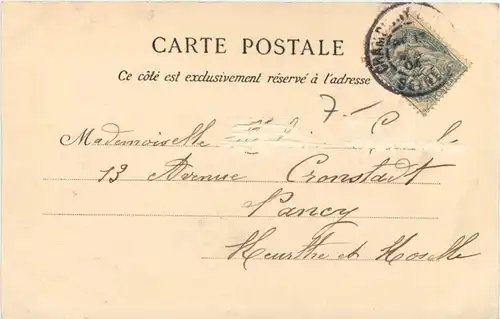 CARTE POSTALE
Ce côté est exclusivement réservé à l'adresse
7-
Mademoiselle
13 Avenue Cronstadt
Nancy
Meurthe et Moselle